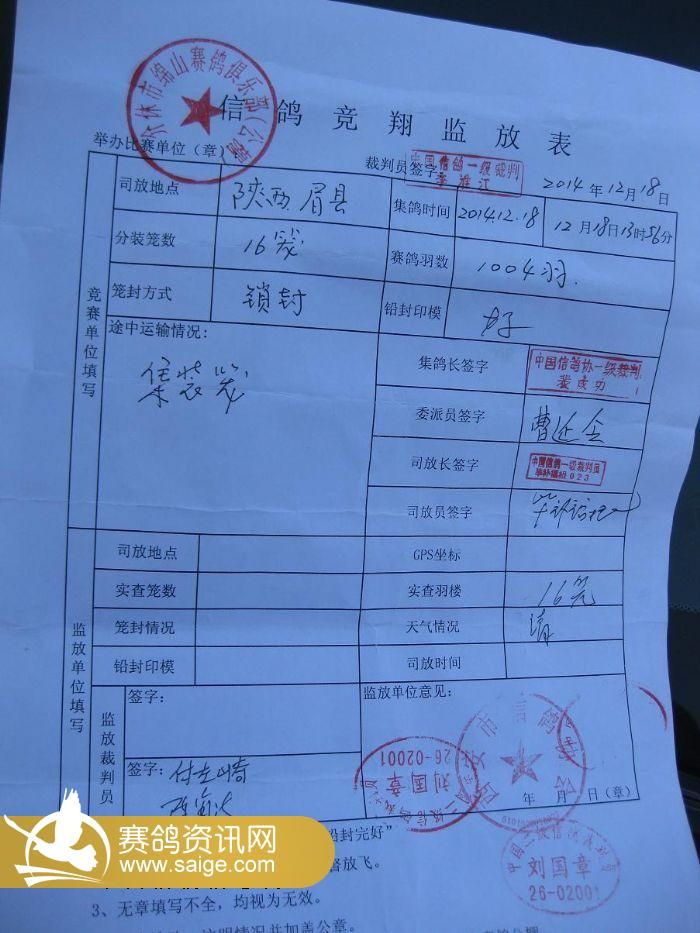 介休市绵山赛鸽俱乐部(公棚)
信鸽竞翔监放表
举办比赛单位（章）
裁判员签字
中国信鸽一级裁判
2014年12月18日
竞赛单位填写
司放地点 陕西眉县 集鸽时间 2014.12.18 12月18日13时56分
分装笼数 16笼 赛鸽羽数 1004羽.
笼封方式 锁封 铅封印模 好
途中运输情况：
集装笼
集鸽长签字 中国信鸽协一级裁判
裴成功
委派员签字
司放长签字 中国信鸽一级裁判员
023
司放员签字
监放单位填写
司放地点 GPS坐标
实查笼数 实查羽楼 16笼
笼封情况 天气情况 晴
铅封印模 司放时间
监放裁判员
签字：
签字：
监放单位意见：
年 月 日（章）
刘国章
26-02001
铅封完好”
督放飞。
刘国章
26-02001
3、无章填写不全，均视为无效。
赛鸽资讯网
www.saige.com